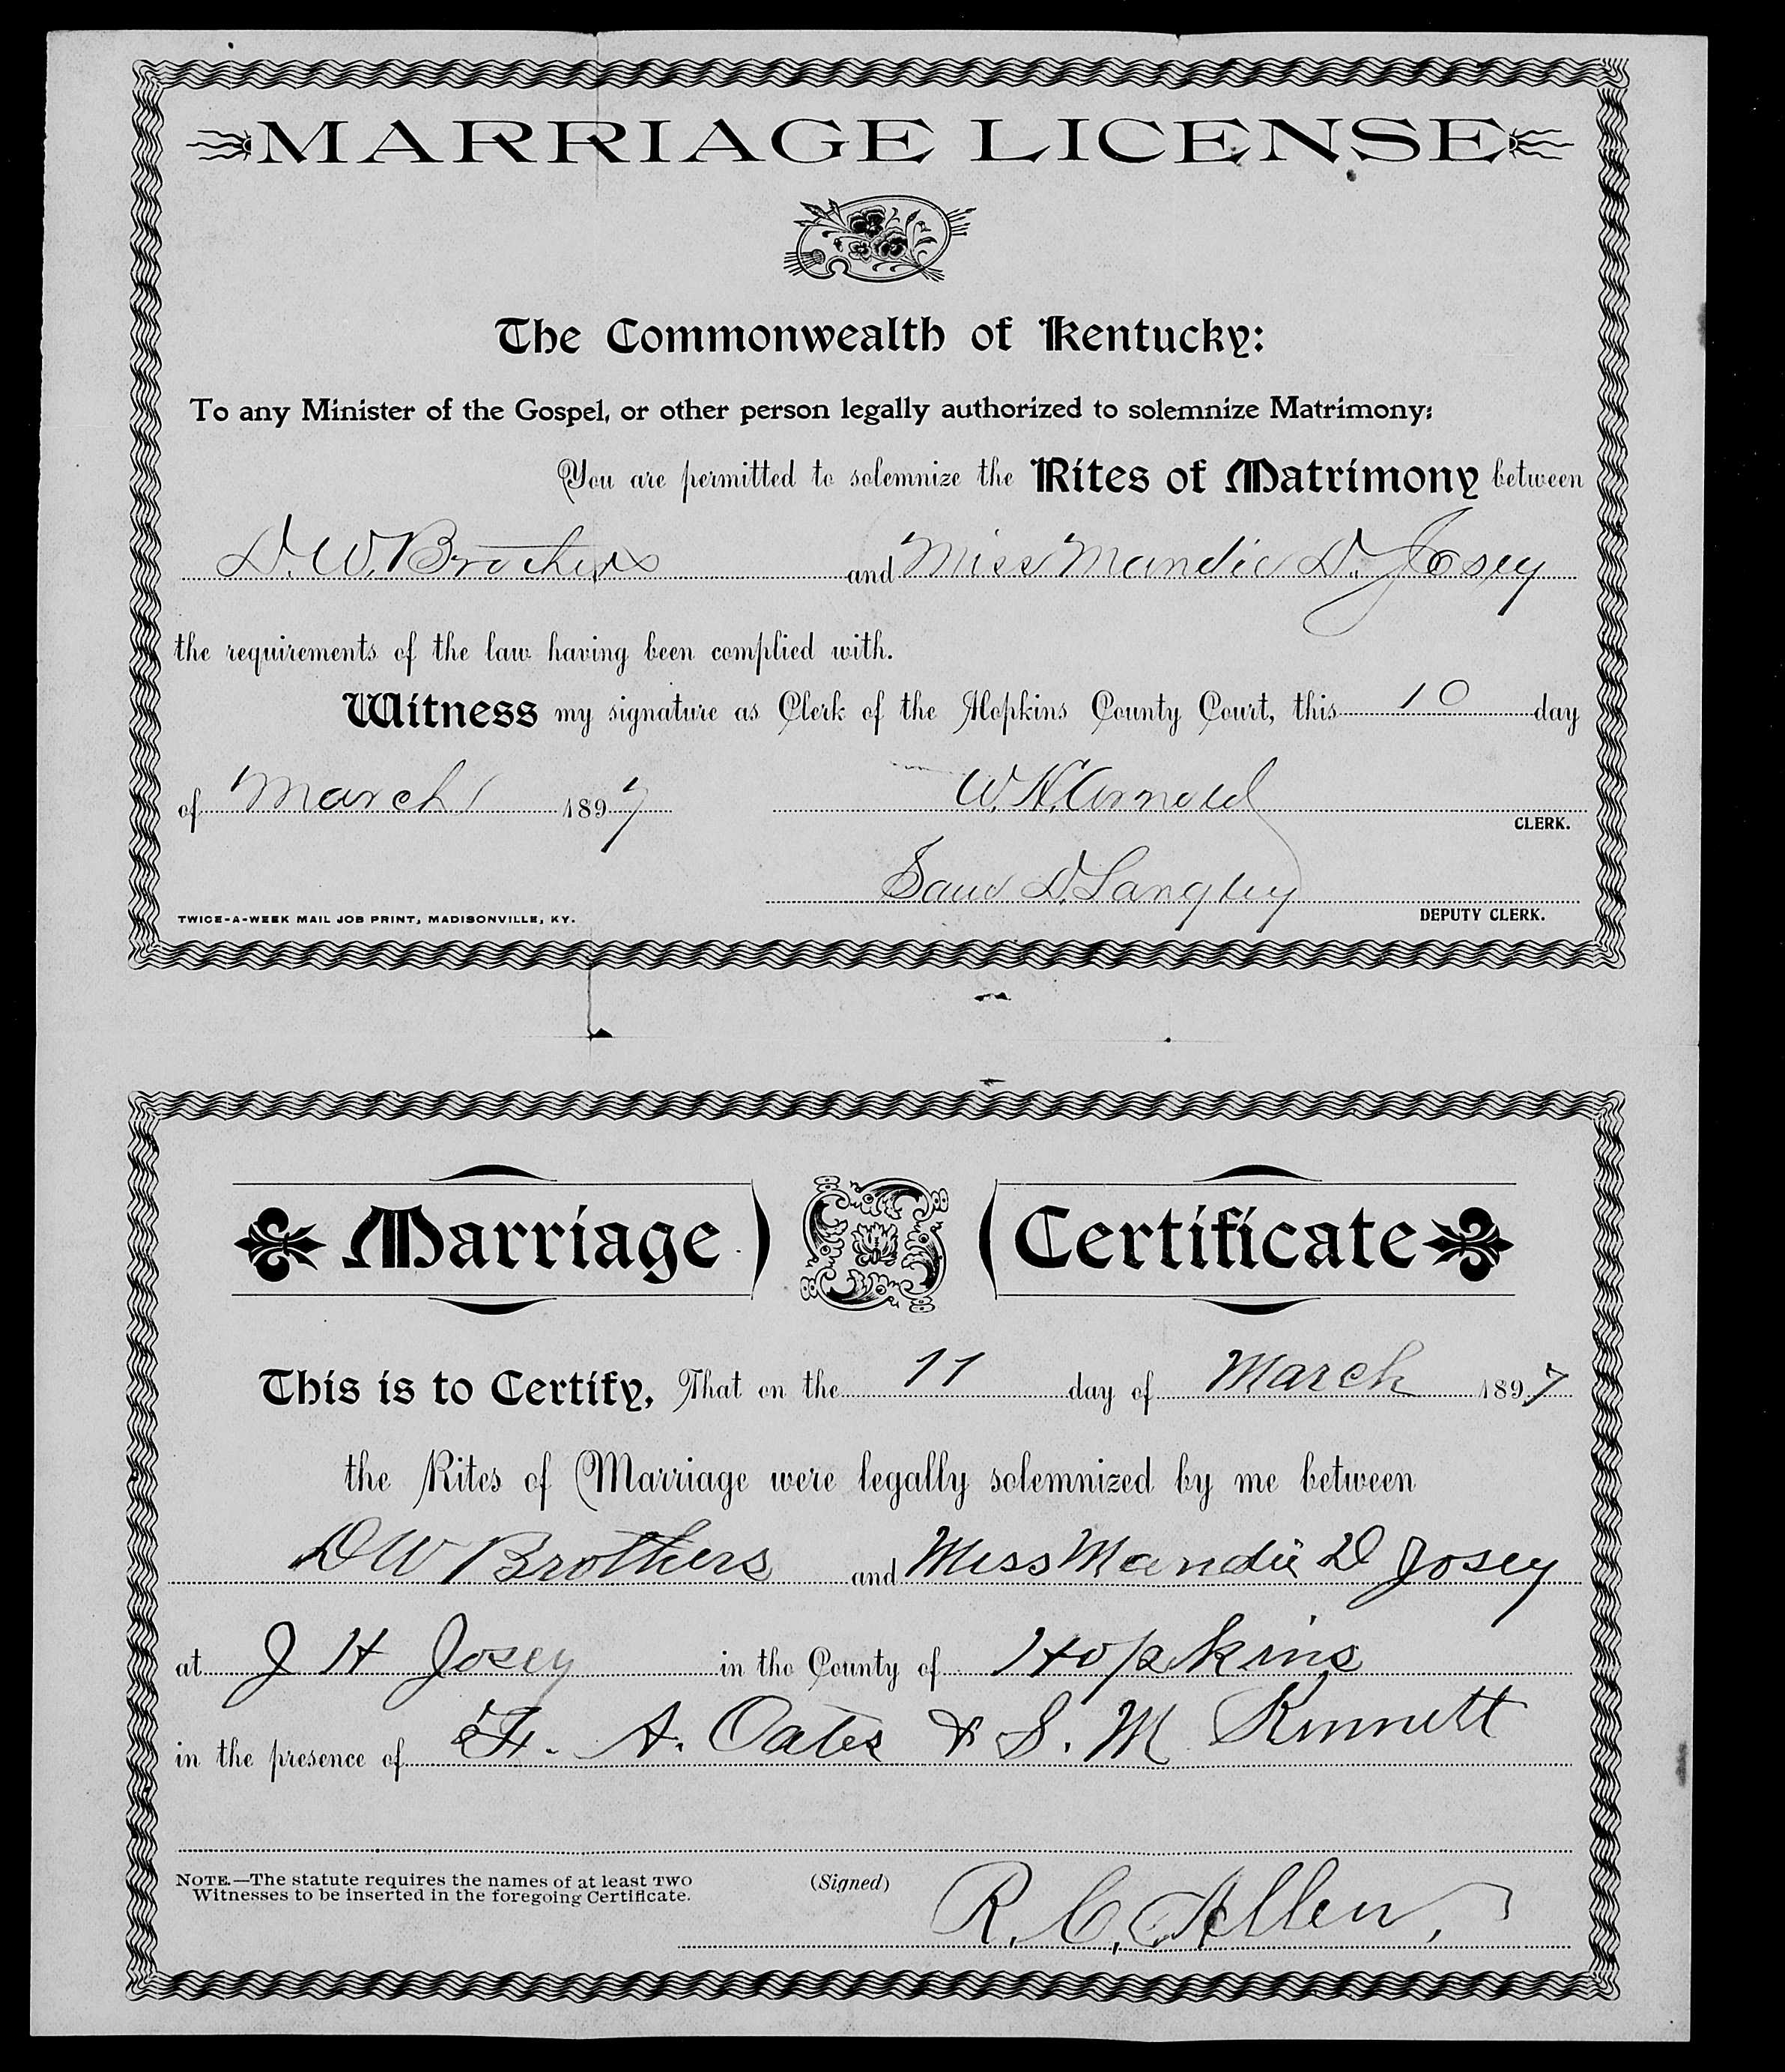 MARRIAGE LICENSE
The Commonwealth of Kentucky:
To any Minister of the Gospel, or other person legally authorized to solemnize Matrimony:
You are permitted to solemnize the Rites of Matrimony between
D. W. Brothers and Miss Mandie D. Josey
the requirements of the law having been complied with.
Witness my signature as Clerk of the Hopkins County Court, this 10 day
of March 1897 W. H. Arnold
CLERK.
D. Langley
TWICE-A-WEEK MAIL JOB PRINT, MADISONVILLE, KY. DEPUTY CLERK.
Marriage Certificate
This is to Certify, That on the 11 day of March 1897
the Rites of Marriage were legally solemnized by me between
D W Brothers and Miss Mandie D Josey
at J H Josey in the County of Hopkins
in the presence of A. Oates & S. M
NOTE.—The statute requires the names of at least TWO (Signed) R. C. Allen,
Witnesses to be inserted in the foregoing Certificate.